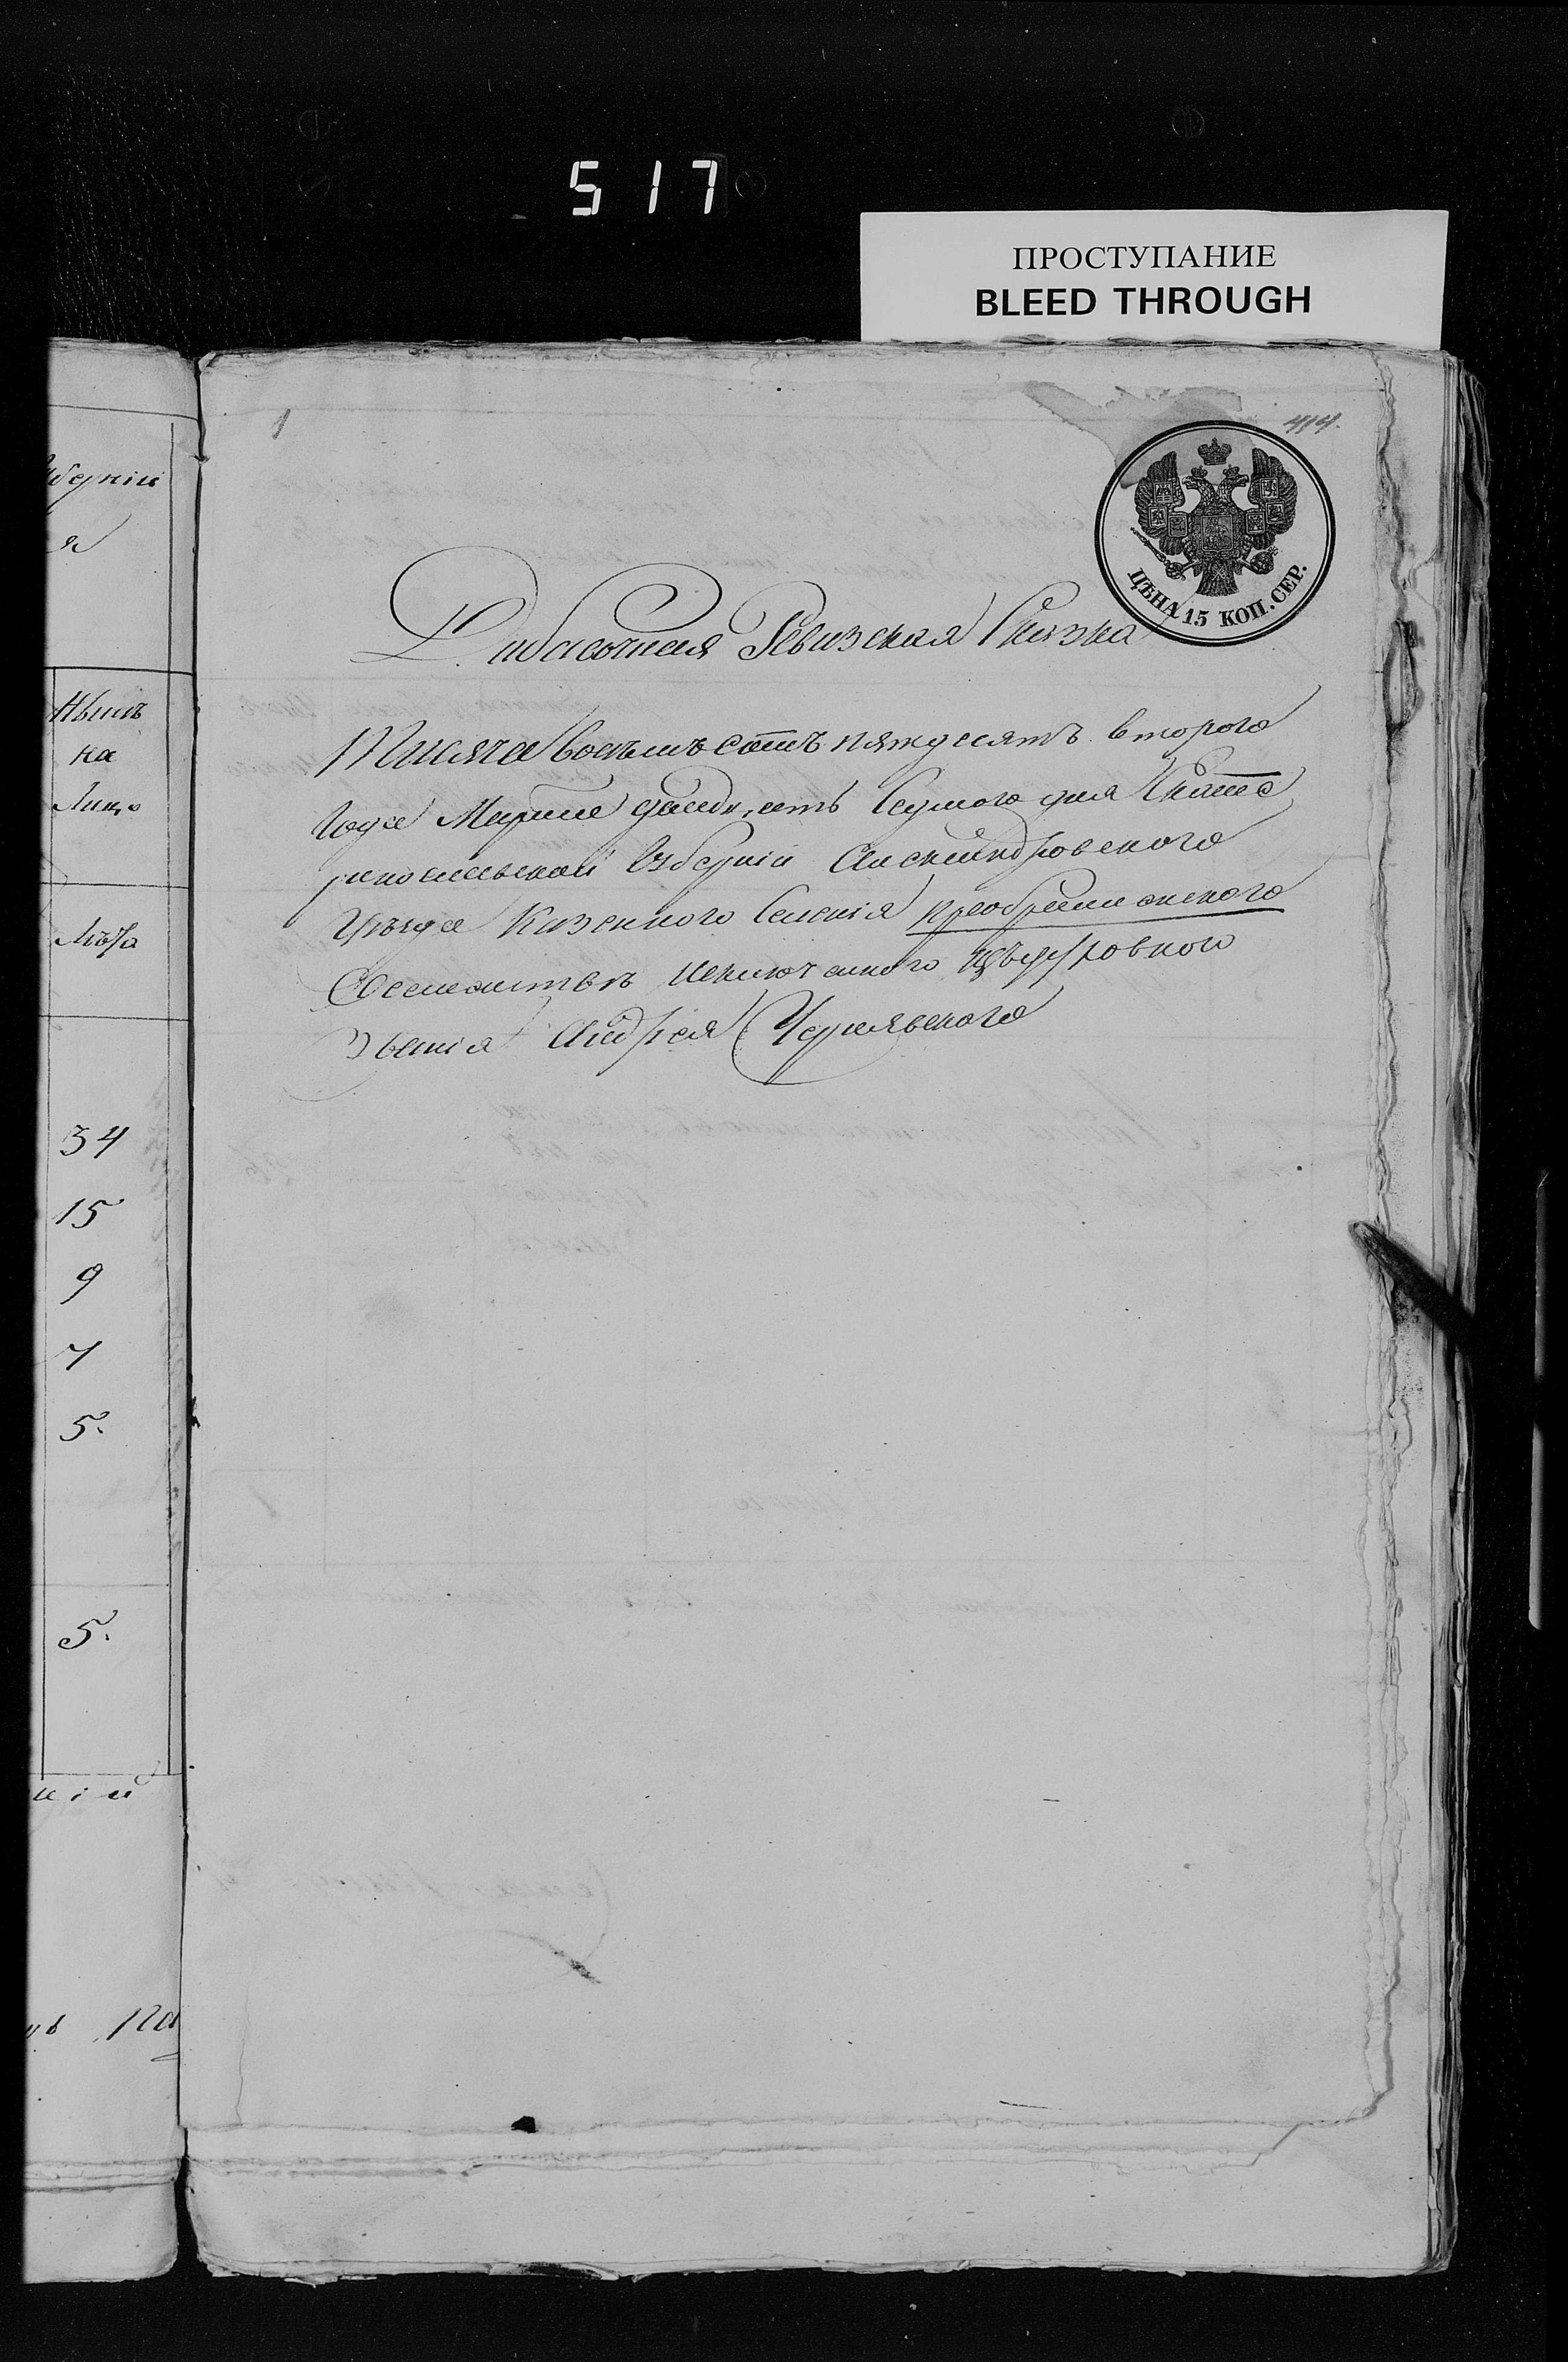 517
ПРОСТУПАНИЕ
BLEED THROUGH
1
414.
ЦѢНА 15 КОП. СЕР.
Добавочная Ревизская Сказка
Тысяча восемьсотъ пятдесятъ второго
Года Марта двадцать Седмого дня Екате
ринославской Губерніи Александровского
Уѣзда Казенного Селенія преображенского
О Семействѣ исключенного
Званія Андрея Чернявского
уберніи
я
Нынѣ
на
Лицо
Лѣта
34
15
9
7
5.
5.
ній
на